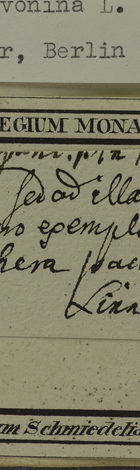 vonina L.
r, Berlin
EGIUM MONA
sed ad illa
no exempla
hera pa
Linn
m Schmiedelia